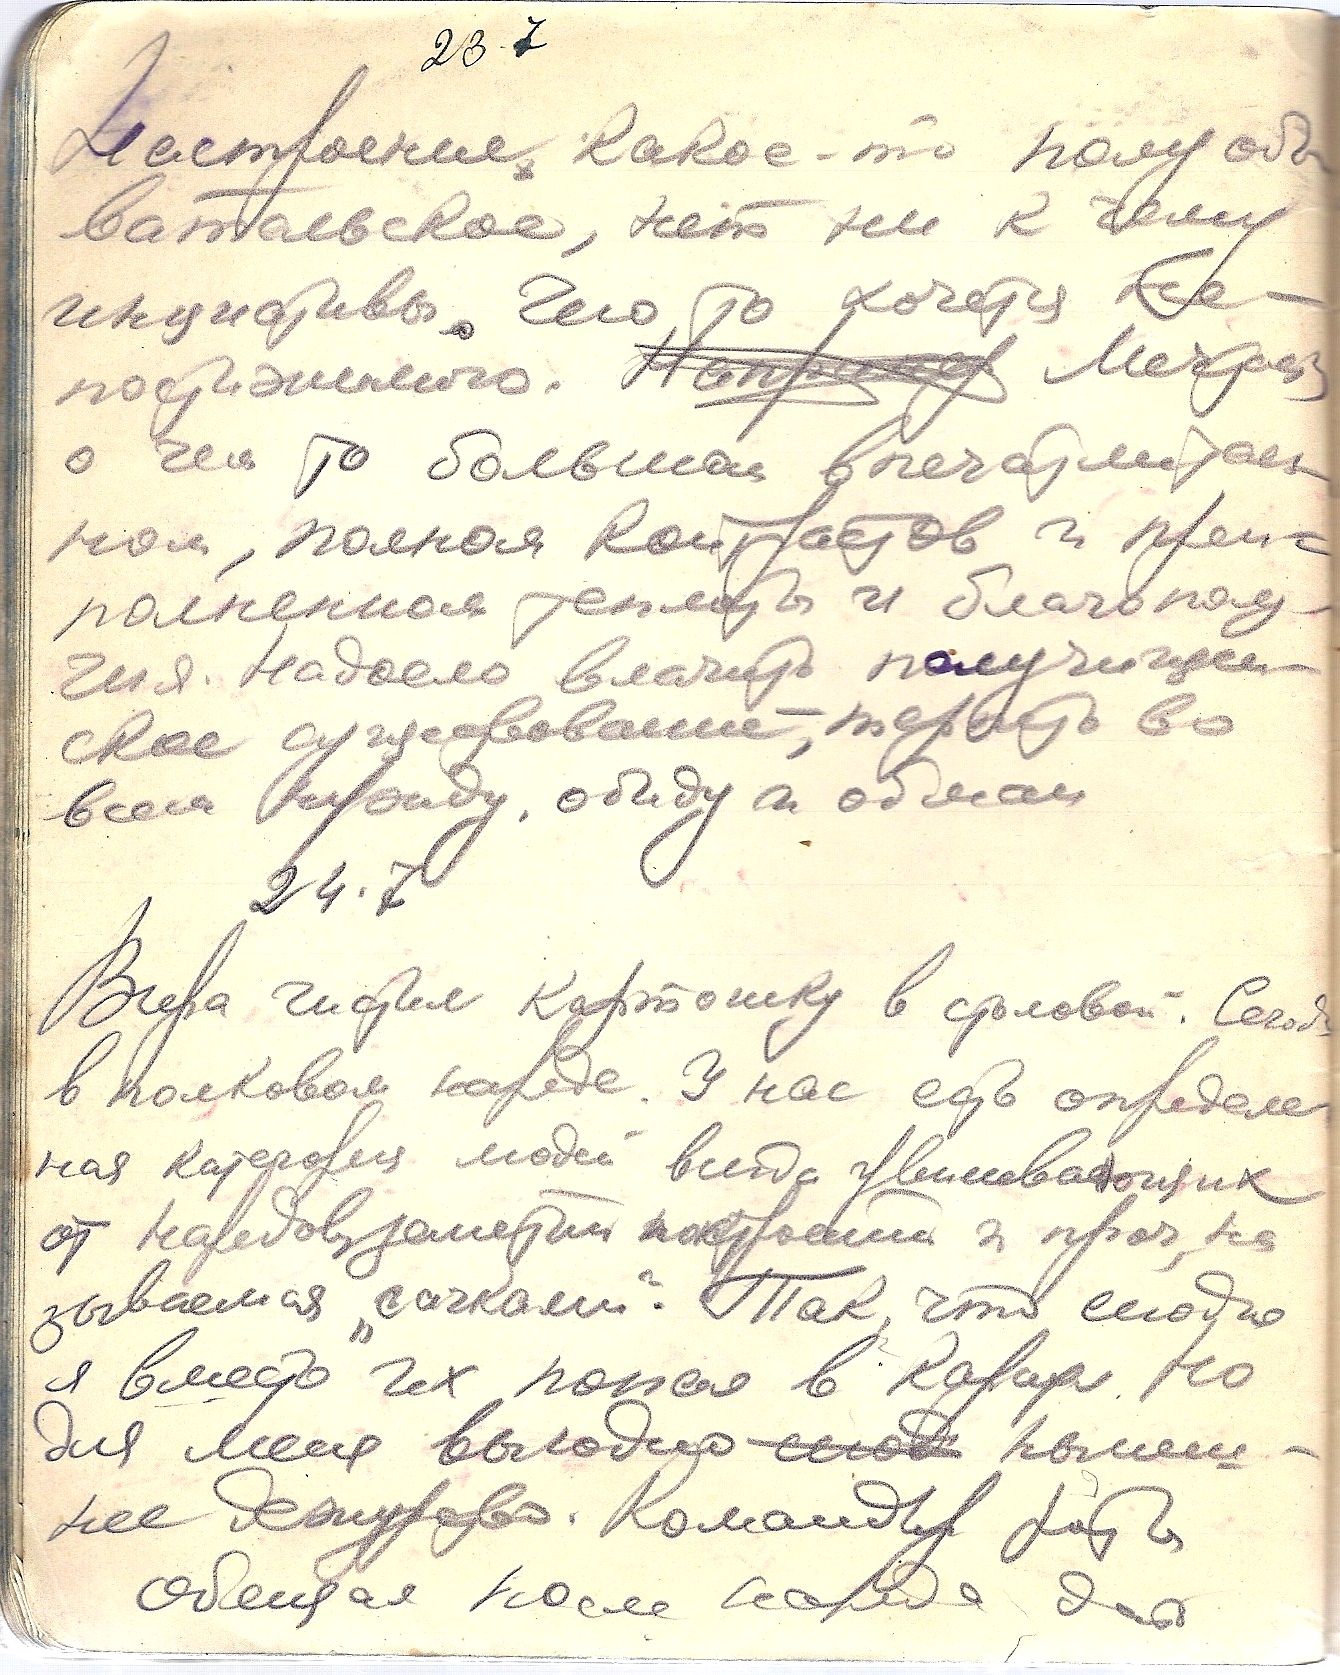 23.7
Настроение какое-то полуобы
вательское, нет ни к чему
инициативы. Чего то хочется не-
постижимого. Например Мечтаешь
о чем то большом впечатлитель
ном, полном контрастов и преис-
полненном теплоты и благополу-
чия. Надоело влачить полунищен-
ское существование, терпеть во
всем нужду, обиду и обман
24.7
Вчера чистил картошку в столовой. Сегодн
в полковом наряде. У нас есть определен
ная категория людей вида увиливающих
от нарядов, занятий и проч, на
зываемая „сачками". Так, что сегодня
я вместо их попал в караул. Но
для меня выгодно нынеш-
нее дежурство. Командир роты
обещал после наряда дать